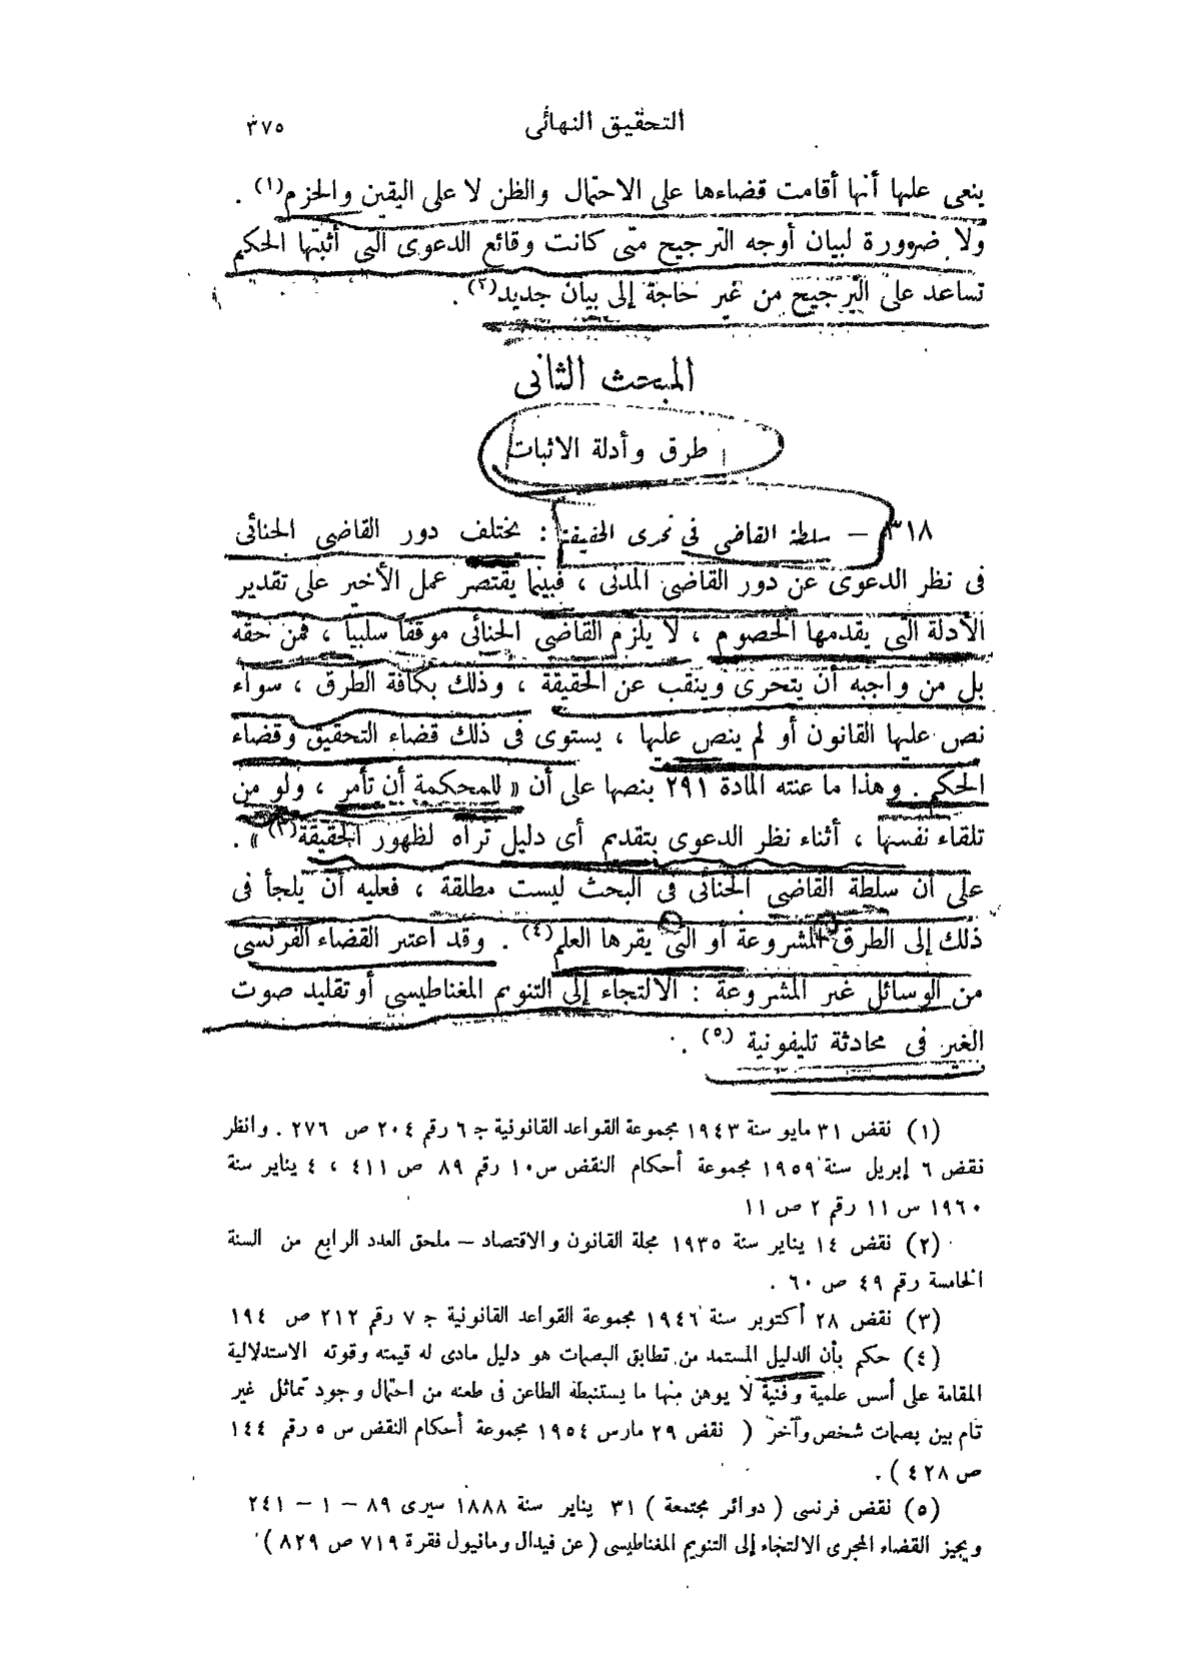 التحقيق النهائى ٣٧٥
ينعى عليها أنها أقامت قضاءها على الاحتمال والظن لا على اليقين والجزم (١) .
ولا ضرورة لبيان أوجه الترجيح متى كانت وقائع الدعوى التى أثبتها الحكم
تساعد على الترجيح من غير حاجة إلى بيان جديد (٢) .
المبحث الثانى
طرق وأدلة الاثبات
٣١٨ – سلطة القاضى فى تحرى الحقيقة : يختلف دور القاضى الجنائى
فى نظر الدعوى عن دور القاضى المدنى ، فبينما يقتصر عمل الأخير على تقدير
الأدلة التى يقدمها الخصوم ، لا يلزم القاضى الجنائى موقفاً سلبياً ، فمن حقه
بل من واجبه أن يتحرى وينقب عن الحقيقة ، وذلك بكافة الطرق ، سواء
نص عليها القانون أو لم ينص عليها ، يستوى فى ذلك قضاء التحقيق وقضاء
الحكم . وهذا ما عنته المادة ٢٩١ بنصها على أن « للمحكمة أن تأمر ، ولو من
تلقاء نفسها ، أثناء نظر الدعوى بتقديم أى دليل تراه لظهور الحقيقة (٣) » .
على أن سلطة القاضى الجنائى فى البحث ليست مطلقة ، فعليه أن يلجأ فى
ذلك إلى الطرق المشروعة أو التى يقرها العلم (٤) . وقد اعتبر القضاء الفرنسى
من الوسائل غير المشروعة : الالتجاء إلى التنويم المغناطيسى أو تقليد صوت
الغير فى محادثة تليفونية (٥) .
(١) نقض ٣١ مايو سنة ١٩٤٣ مجموعة القواعد القانونية ج ٦ رقم ٢٠٤ ص ٢٧٦ . وانظر
نقض ٦ إبريل سنة ١٩٥٩ مجموعة أحكام النقض س ١٠ رقم ٨٩ ص ٤١١ ، ٤ يناير سنة
١٩٦٠ س ١١ رقم ٢ ص ١١
(٢) نقض ١٤ يناير سنة ١٩٣٥ مجلة القانون والاقتصاد – ملحق العدد الرابع من السنة
الخامسة رقم ٤٩ ص ٦٠ .
(٣) نقض ٢٨ أكتوبر سنة ١٩٤٦ مجموعة القواعد القانونية ج ٧ رقم ٢١٢ ص ١٩٤
(٤) حكم بأن الدليل المستمد من تطابق البصمات هو دليل مادى له قيمته وقوته الاستدلالية
المقامة على أسس علمية وفنية لا يوهن منها ما يستنبطه الطاعن فى طعنه من احتمال وجود تماثل غير
تام بين بصمات شخص وآخر ( نقض ٢٩ مارس ١٩٥٤ مجموعة أحكام النقض س ٥ رقم ١٤٤
ص ٤٢٨ ) .
(٥) نقض فرنسى ( دوائر مجتمعة ) ٣١ يناير سنة ١٨٨٨ سيرى ٨٩ – ١ – ٢٤١
ويجيز القضاء المجرى الالتجاء إلى التنويم المغناطيسى ( عن فيدال ومانيول فقرة ٧١٩ ص ٨٢٩ )